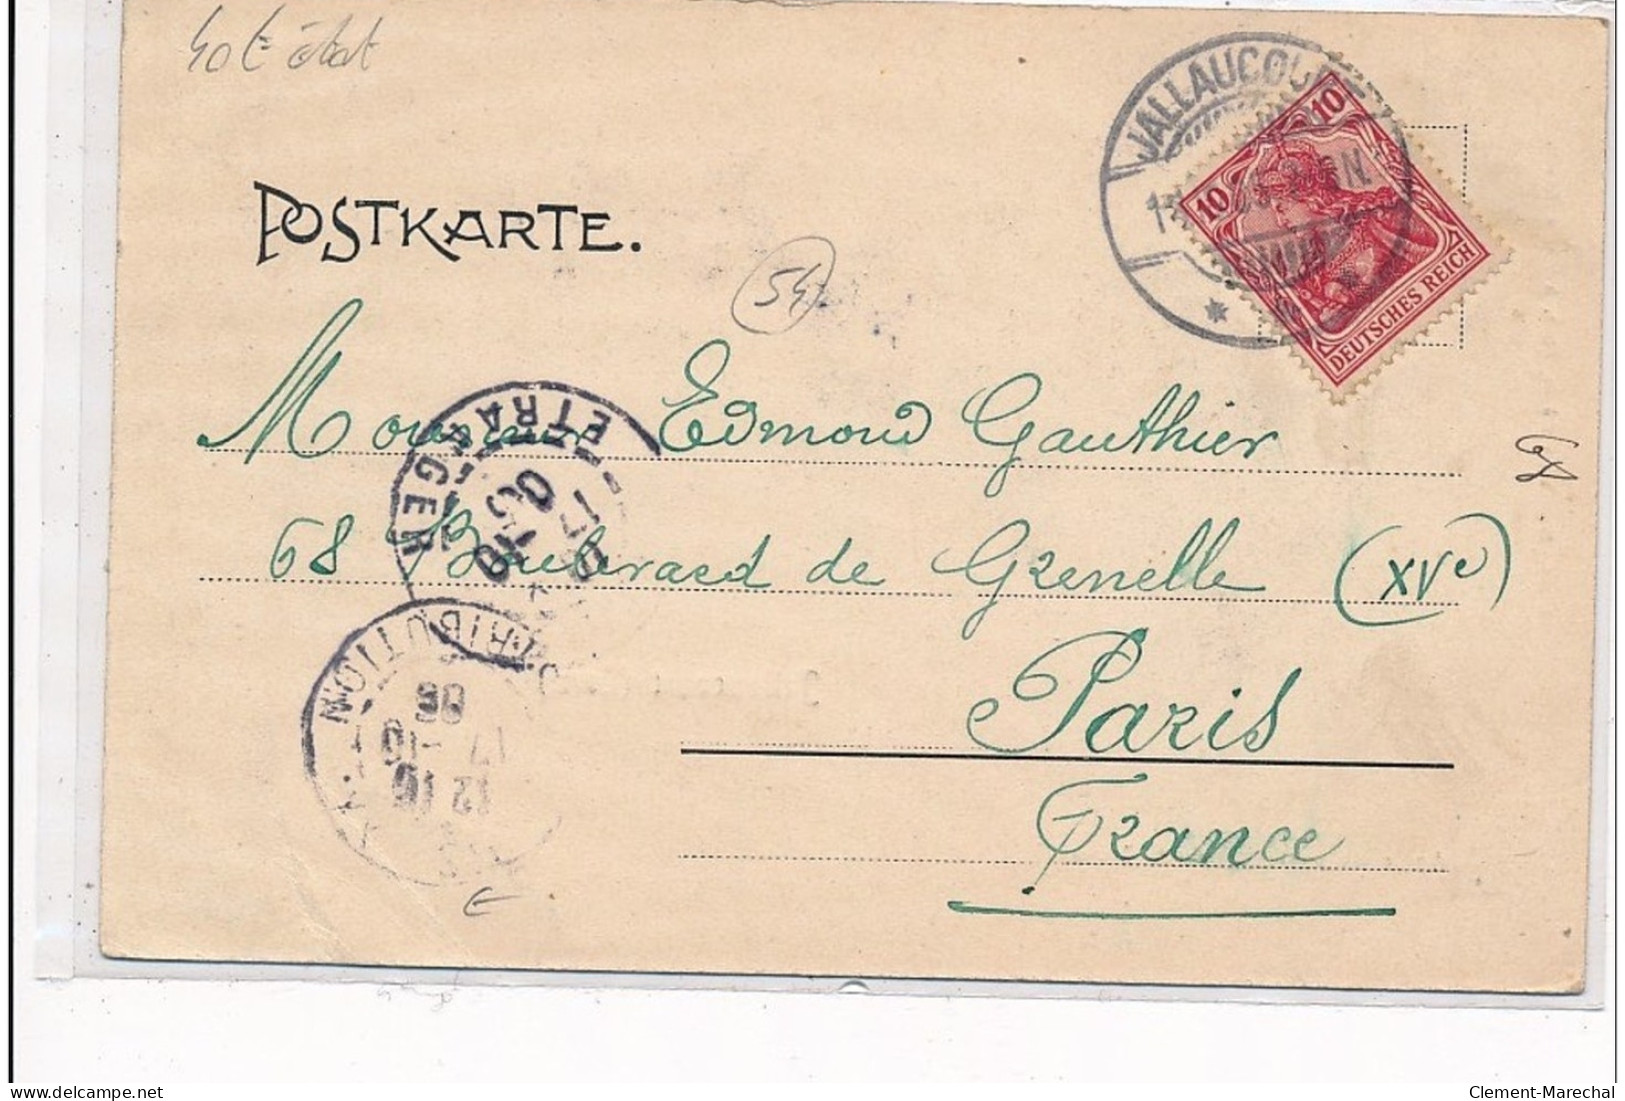 40 € état
JALLAUCOURT
10
10
DEUTSCHES REICH
POSTKARTE.
54
Monsieur Edmond Gauthier
68 Boulevard de Grenelle (XVe)
Paris
France
ETRANGER
17
10
06
DISTRIBUTION
12 10
17 - 10
06
E
Clement-Marechal
delcampe.net